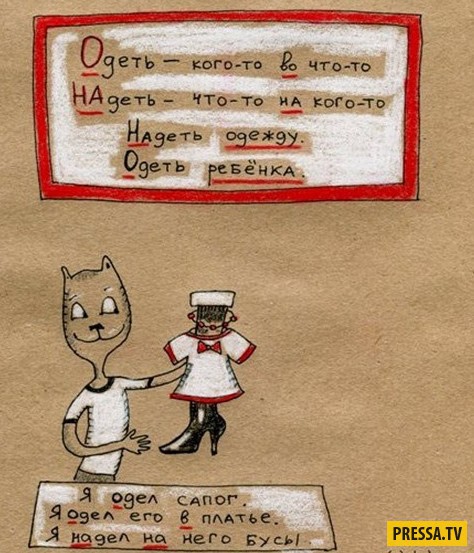 Одеть – кого-то во что-то
НАдеть – что-то на кого-то
Надеть одежду.
Одеть ребёнка.
Я одел сапог.
Я одел его в платье.
Я надел на него бусы
PRESSA.TV